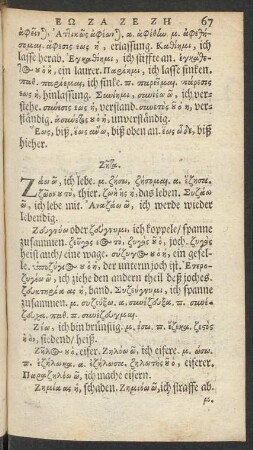 ΕΩ ΖΑ ΖΕ ΖΗ 67
σομαι. ἄφεσις εως ἡ, erlassung. Καθίημι, ich
lasse herab. Ἐγκαθίημι, ich stiffte an.
ὁ ἡ, ein laurer. Παρίημι, ich lasse sincken.
ich sincke.
εως ἡ, hinlassung. Συνίημι, ich ver-
stehe. σύνεσις εως ἡ, verstand. συνετὸς ὁ ἡ, ver-
ständig. ἀσύνετος ὁ ἡ, unverständig.
Ἕως, biß, ἕως ἄνω, biß oben an. ἕως ὧδε, biß
hieher.
Ζῆτα.
Ζάω ῶ, ich lebe. μ. ζήσω, ζήσομαι. α. ἔζησα.
ζῶον τὸ, thier. ζωὴ ῆς ἡ, das leben. Συζάω
ῶ, ich lebe mit. Ἀναζάω ῶ, ich werde wieder
lebendig.
Ζευγνύω oder ζεύγνυμι, ich koppele/ spanne
zusammen. ζεῦγος τὸ, ζυγὸς ὁ, joch. ζυγὸς
heist auch/ eine wage. σύζυγος ὁ ἡ, ein gesel-
le. ὑποζύγιος ὁ ἡ, der unterm joch ist.
ῶ, ich ziehe den andern theil deß joches.
ας ἡ, band. Συζεύγνυμι, ich spanne
zusammen. μ. συζεύξω. α. συνέζευξα. π. συνέ-
ζευχα. παθ. π. συνέζευγμαι.
Ζέω, ich bin brünstig. μ. έσω. π. ἔζεκα. ζεστὸς
siedend/ heiß.
Ζῆλος ὁ, eifer. Ζηλόω ῶ, ich eifere. μ. ώσω.
π. ἐζήλωκα. α. ἐζήλωσα. ζηλωτὴς ὁ, eiferer.
Παραζηλόω ῶ, ich mache eifern.
Ζημία ας ἡ, schaden. Ζημιόω ῶ, ich straffe ab.
μ.